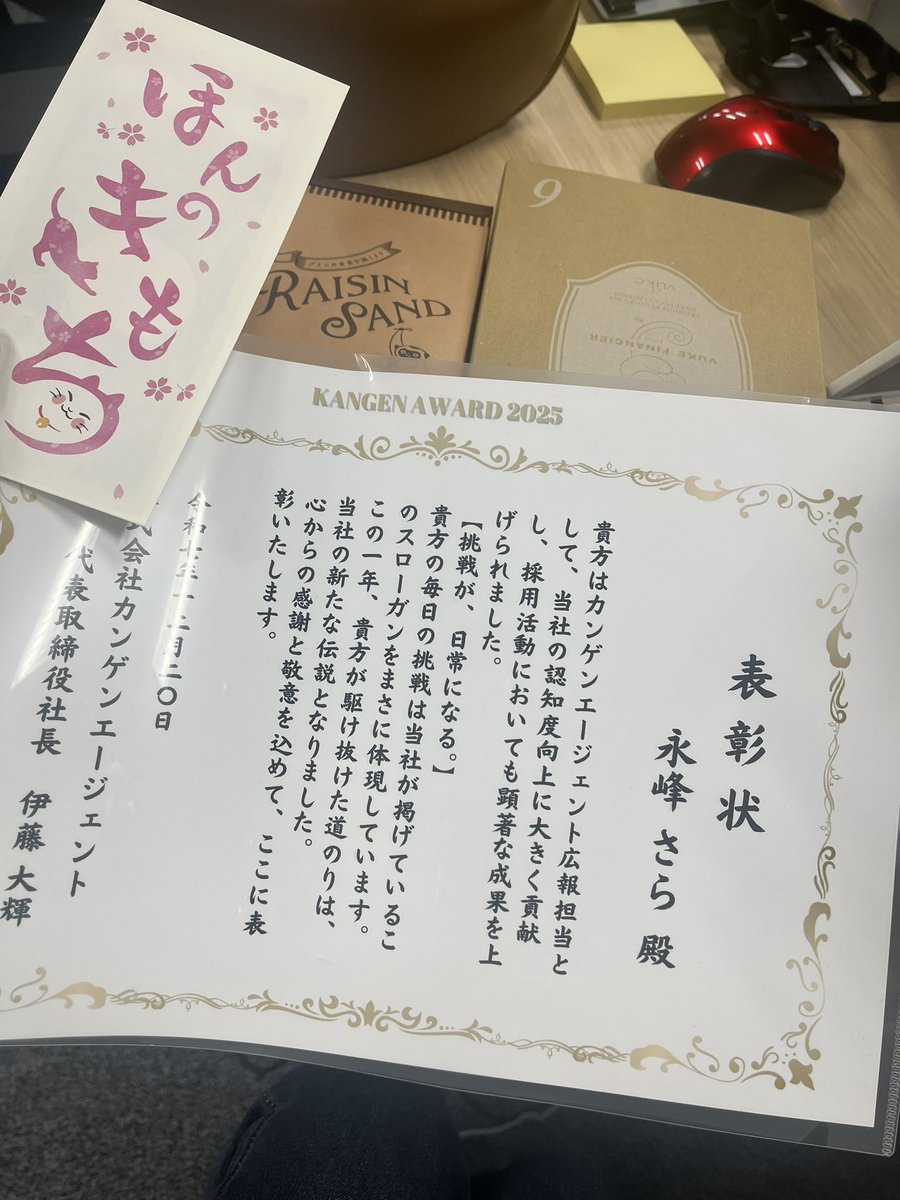 ほんの
きも
ち
RAISIN
SAND
9
vüke
VÜKE FINANCIER
KANGEN AWARD 2025
表彰状
永峰 さら 殿
貴方はカンゲンエージェント広報担当と
して、当社の認知度向上に大きく貢献
し、採用活動においても顕著な成果を上
げられました。
【挑戦が、日常になる。】
貴方の毎日の挑戦は当社が掲げているこ
のスローガンをまさに体現しています。
この一年、貴方が駆け抜けた道のりは、
当社の新たな伝説となりました。
心からの感謝と敬意を込めて、ここに表
彰いたします。
令和七年一二月二〇日
式会社カンゲンエージェント
代表取締役社長 伊藤 大輝